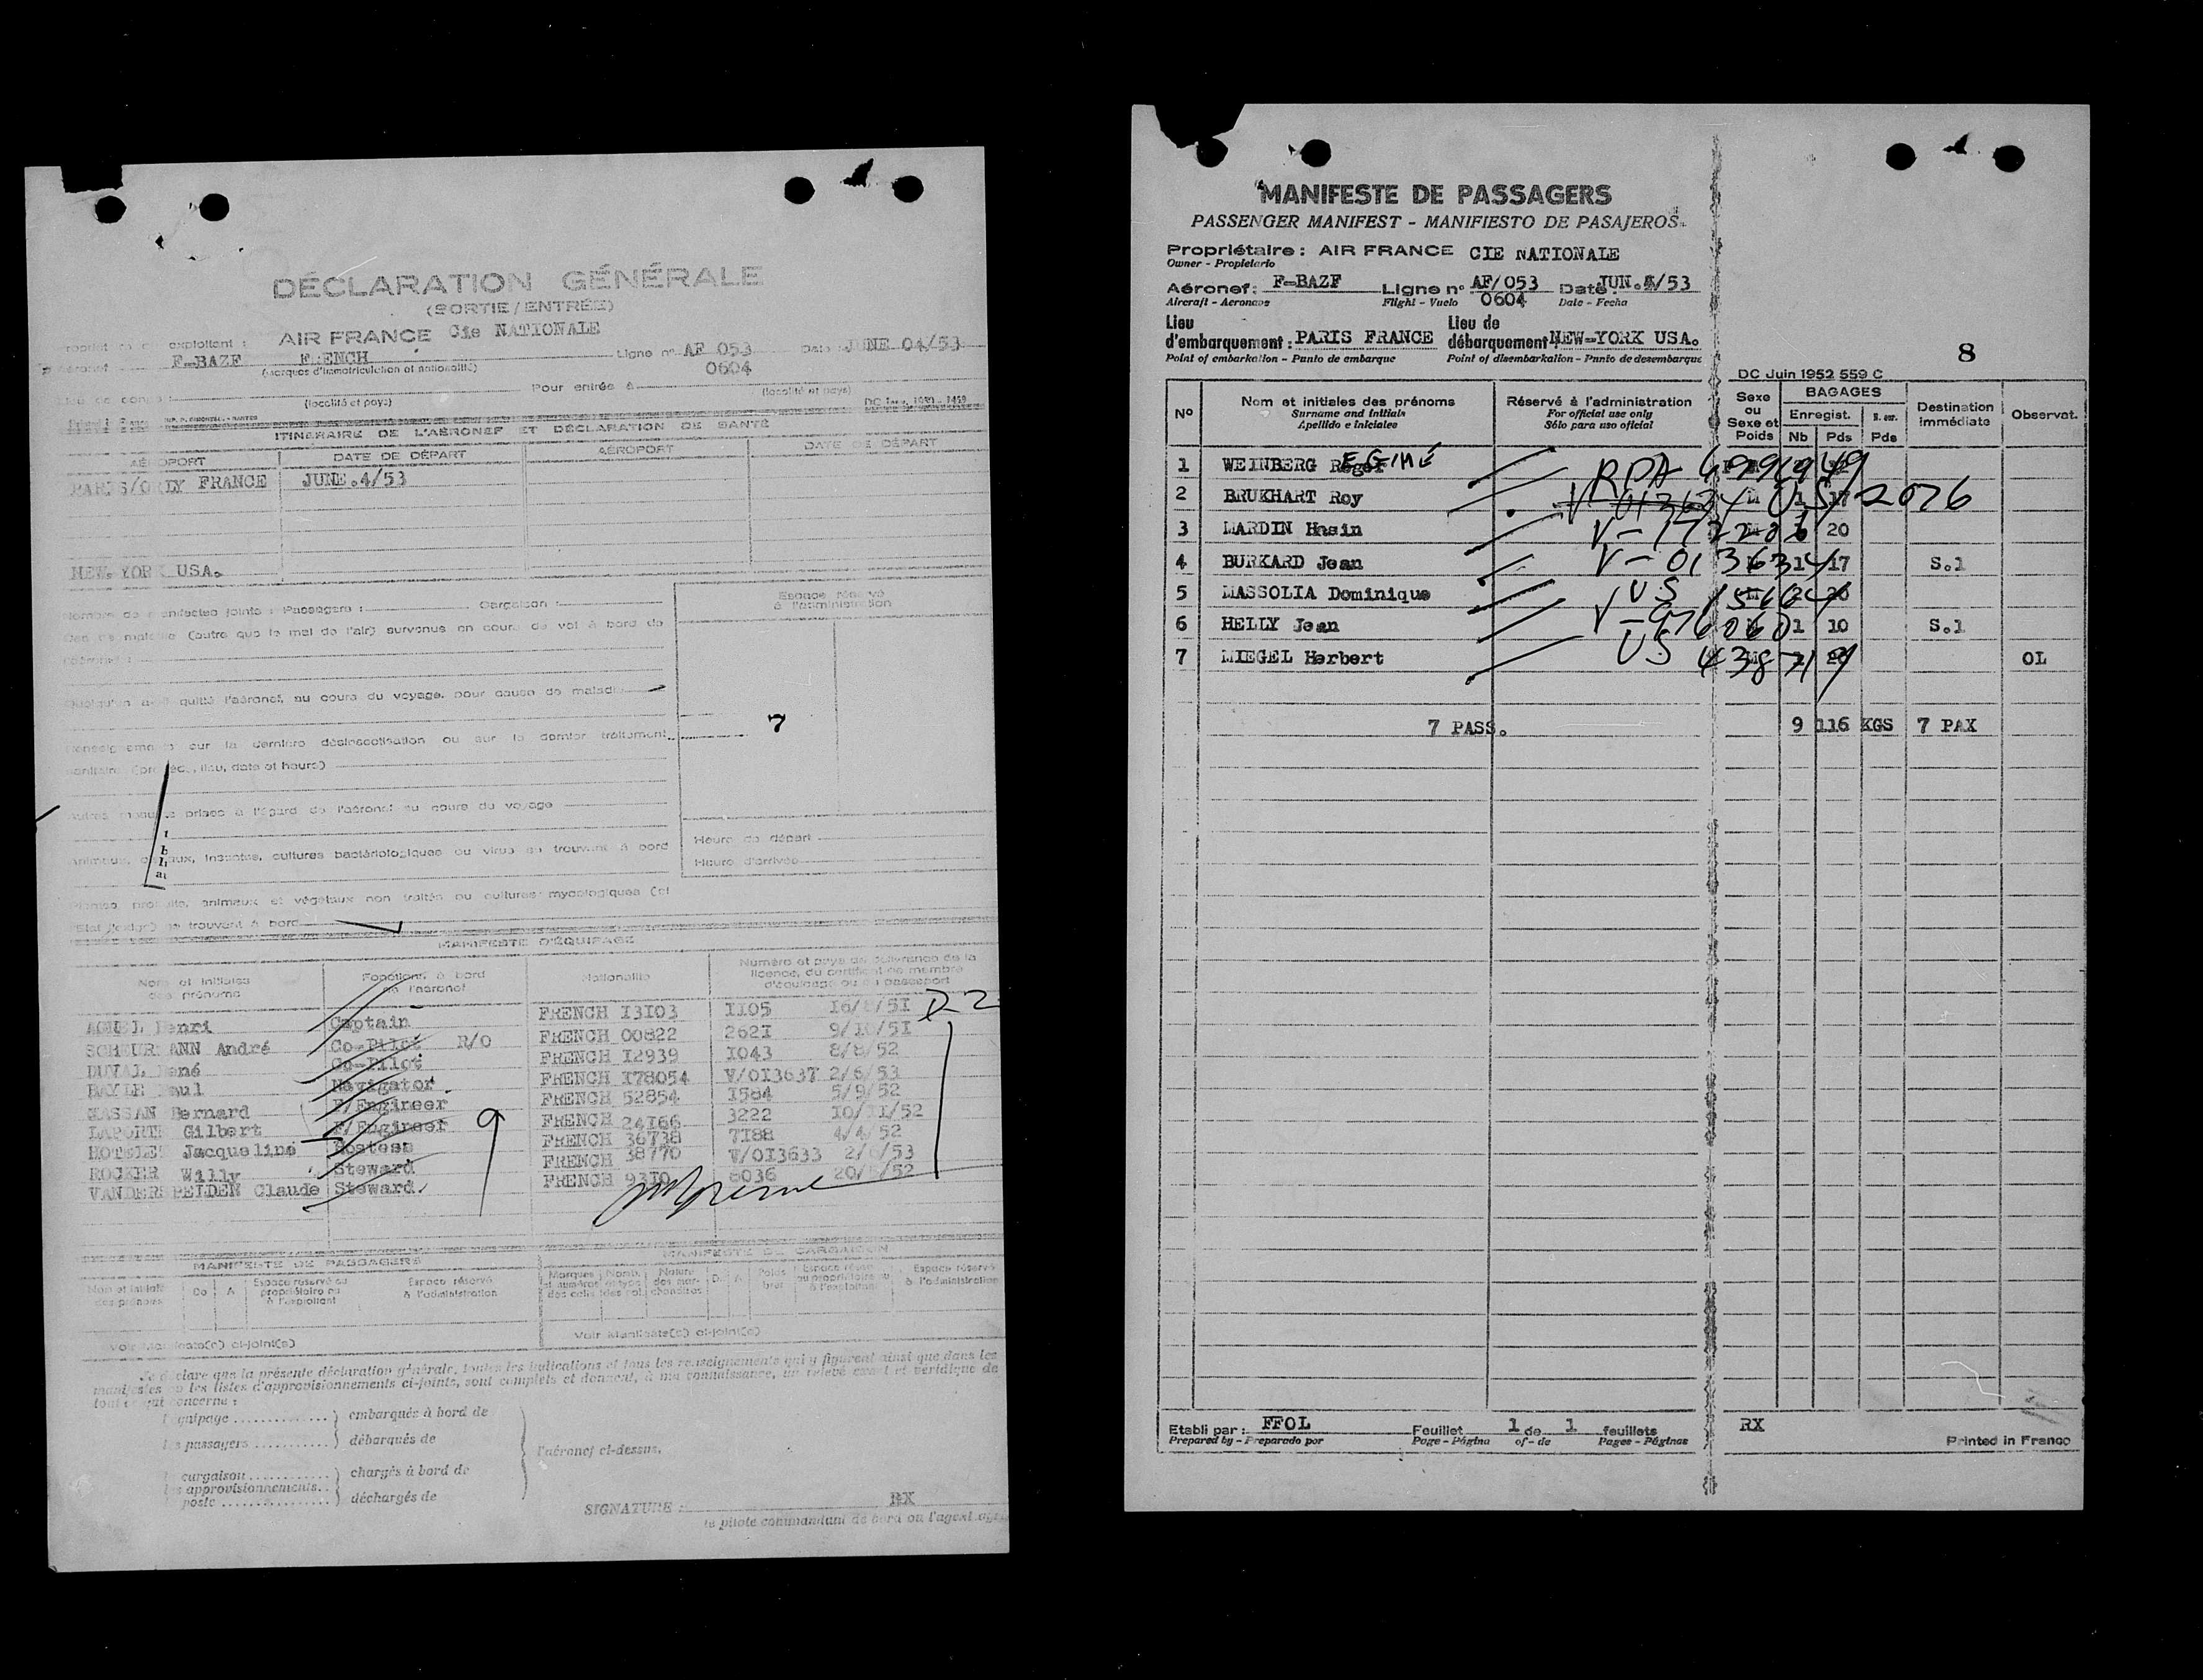 DÉCLARATION GÉNÉRALE
(SORTIE/ENTRÉE)
exploitant : AIR FRANCE Cie NATIONALE
F-BAZF FRENCH Ligne nº AF 053 Date JUNE 04/53
(marques d'immatriculation et nationalité) 0604
Pour entrée à
(localité et pays) (localité et pays)
ITINÉRAIRE DE L'AÉRONEF ET DÉCLARATION DE SANTÉ
AÉROPORT DATE DE DÉPART AÉROPORT DATE DE DÉPART
PARIS/ORLY FRANCE JUNE.4/53
NEW-YORK USA.
Nombre de manifestes joints : Passagers : Cargaison :
Espace réservé
à l'administration
Cas de maladie (autre que le mal de l'air) survenus en cours de vol à bord de
l'aéronef :
quitté l'aéronef, au cours du voyage, pour cause de maladie
7
Renseignements sur la dernière désinsectisation ou sur le dernier traitement
sanitaire (procéd., lieu, date et heure)
Autres mesures prises à l'égard de l'aéronef au cours du voyage
Heure de départ
Animaux, oiseaux, insectes, cultures bactériologiques ou virus se trouvant à bord
Heure d'arrivée
Plantes, produits, animaux et végétaux non traités ou cultures mycologiques (si
l'Etat l'exige) se trouvant à bord
MANIFESTE D'ÉQUIPAGE
Nom et initiales
des prénoms
Fonctions à bord
de l'aéronef
Nationalité
Numéro et pays de délivrance de la
licence, du certificat de membre
d'équipage ou du passeport
Henri Captain FRENCH I3I03 1105 5I D-2
SCHEURMANN André Co-Pilot R/O FRENCH 00822 262I 9/10/5I
DUVAL René Co-Pilot FRENCH I2939 I043 8/8/52
BAYLE Paul Navigator FRENCH I78054 V/0I3637 2/6/53
MASSAN Bernard F/Engineer FRENCH 52854 I584 5/9/52
LAPORTE Gilbert F/Engineer FRENCH 24I66 3222 I0/II/52
Jacqueline Hostess FRENCH 36738 7I88 4/4/52
ROCKER Willy Steward FRENCH 38770 V/0I3633 2/6/53
Claude Steward FRENCH 93I0 8036 52
9
MANIFESTE DE PASSAGERS MANIFESTE DE CARGAISON
Nom et initiales
des prénoms
Co A
Espace réservé au
propriétaire ou
à l'exploitant
Espace réservé
à l'administration
Marques
et numéros
des colis
Nature
des mar-
chandises
D. A.
Poids
brut
Espace réservé
au propriétaire ou
à l'exploitant
Espace réservé
à l'administration
Voir Manifeste(s) ci-joint(s) Voir Manifeste(s) ci-joint(s)
Je déclare que la présente déclaration générale, toutes les indications et tous les renseignements qui y figurent ainsi que dans les
manifestes ou les listes d'approvisionnements ci-joints, sont complets et donnent, à ma connaissance, un relevé exact et véridique de
tout ce qui concerne :
l'équipage embarqués à bord de
les passagers débarqués de
l'aéronef ci-dessus.
la cargaison chargés à bord de
les approvisionnements
la poste déchargés de
SIGNATURE : RX
le pilote commandant de bord ou l'agent
MANIFESTE DE PASSAGERS
PASSENGER MANIFEST - MANIFIESTO DE PASAJEROS
Propriétaire : AIR FRANCE CIE NATIONALE
Owner - Propietario
Aéronef: F-BAZF Ligne nº AF/053 Date JUN.4/53
Aircraft - Aeronave Flight - Vuelo 0604 Date - Fecha
Lieu
d'embarquement : PARIS FRANCE
Lieu de
débarquement NEW-YORK USA.
Point of embarkation - Punto de embarque Point of disembarkation - Punto de desembarque
8
DC Juin 1952 559 C
Nº
Nom et initiales des prénoms
Surname and initials
Apellido e iniciales
Réservé à l'administration
For official use only
Sólo para uso oficial
Sexe
ou
Sexe et
Poids
BAGAGES
Enregist.
Nb Pds Pds
Destination
immédiate
Observat.
1 WEINBERG Roger EGIMÉ RPA
2 BRUKHART Roy V-013634 US 2076 M 1 17
3 MARDIN Hasin V- 20
4 BURKARD Jean V-013634 1 17 S.1
5 MASSOLIA Dominique US
6 HELLY Jean V-976060 1 10 S.1
7 MIEGEL Herbert US 438719 OL
7 PASS. 9 116 KGS 7 PAX
Etabli par : FFOL Feuillet 1 de 1 feuillets RX
Prepared by - Preparado por Page - Página of - de Pages - Páginas Printed in France